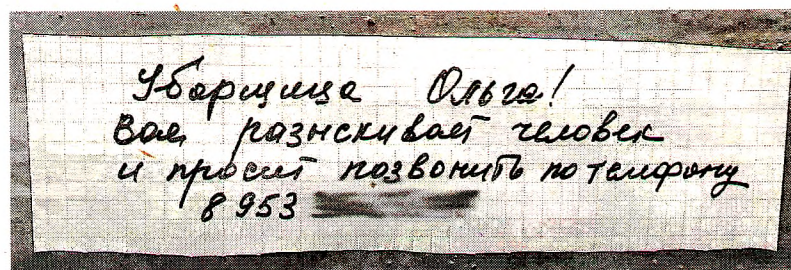 Уборщица Ольга!
Вас разыскивает человек
и просит позвонить по телефону
8 953